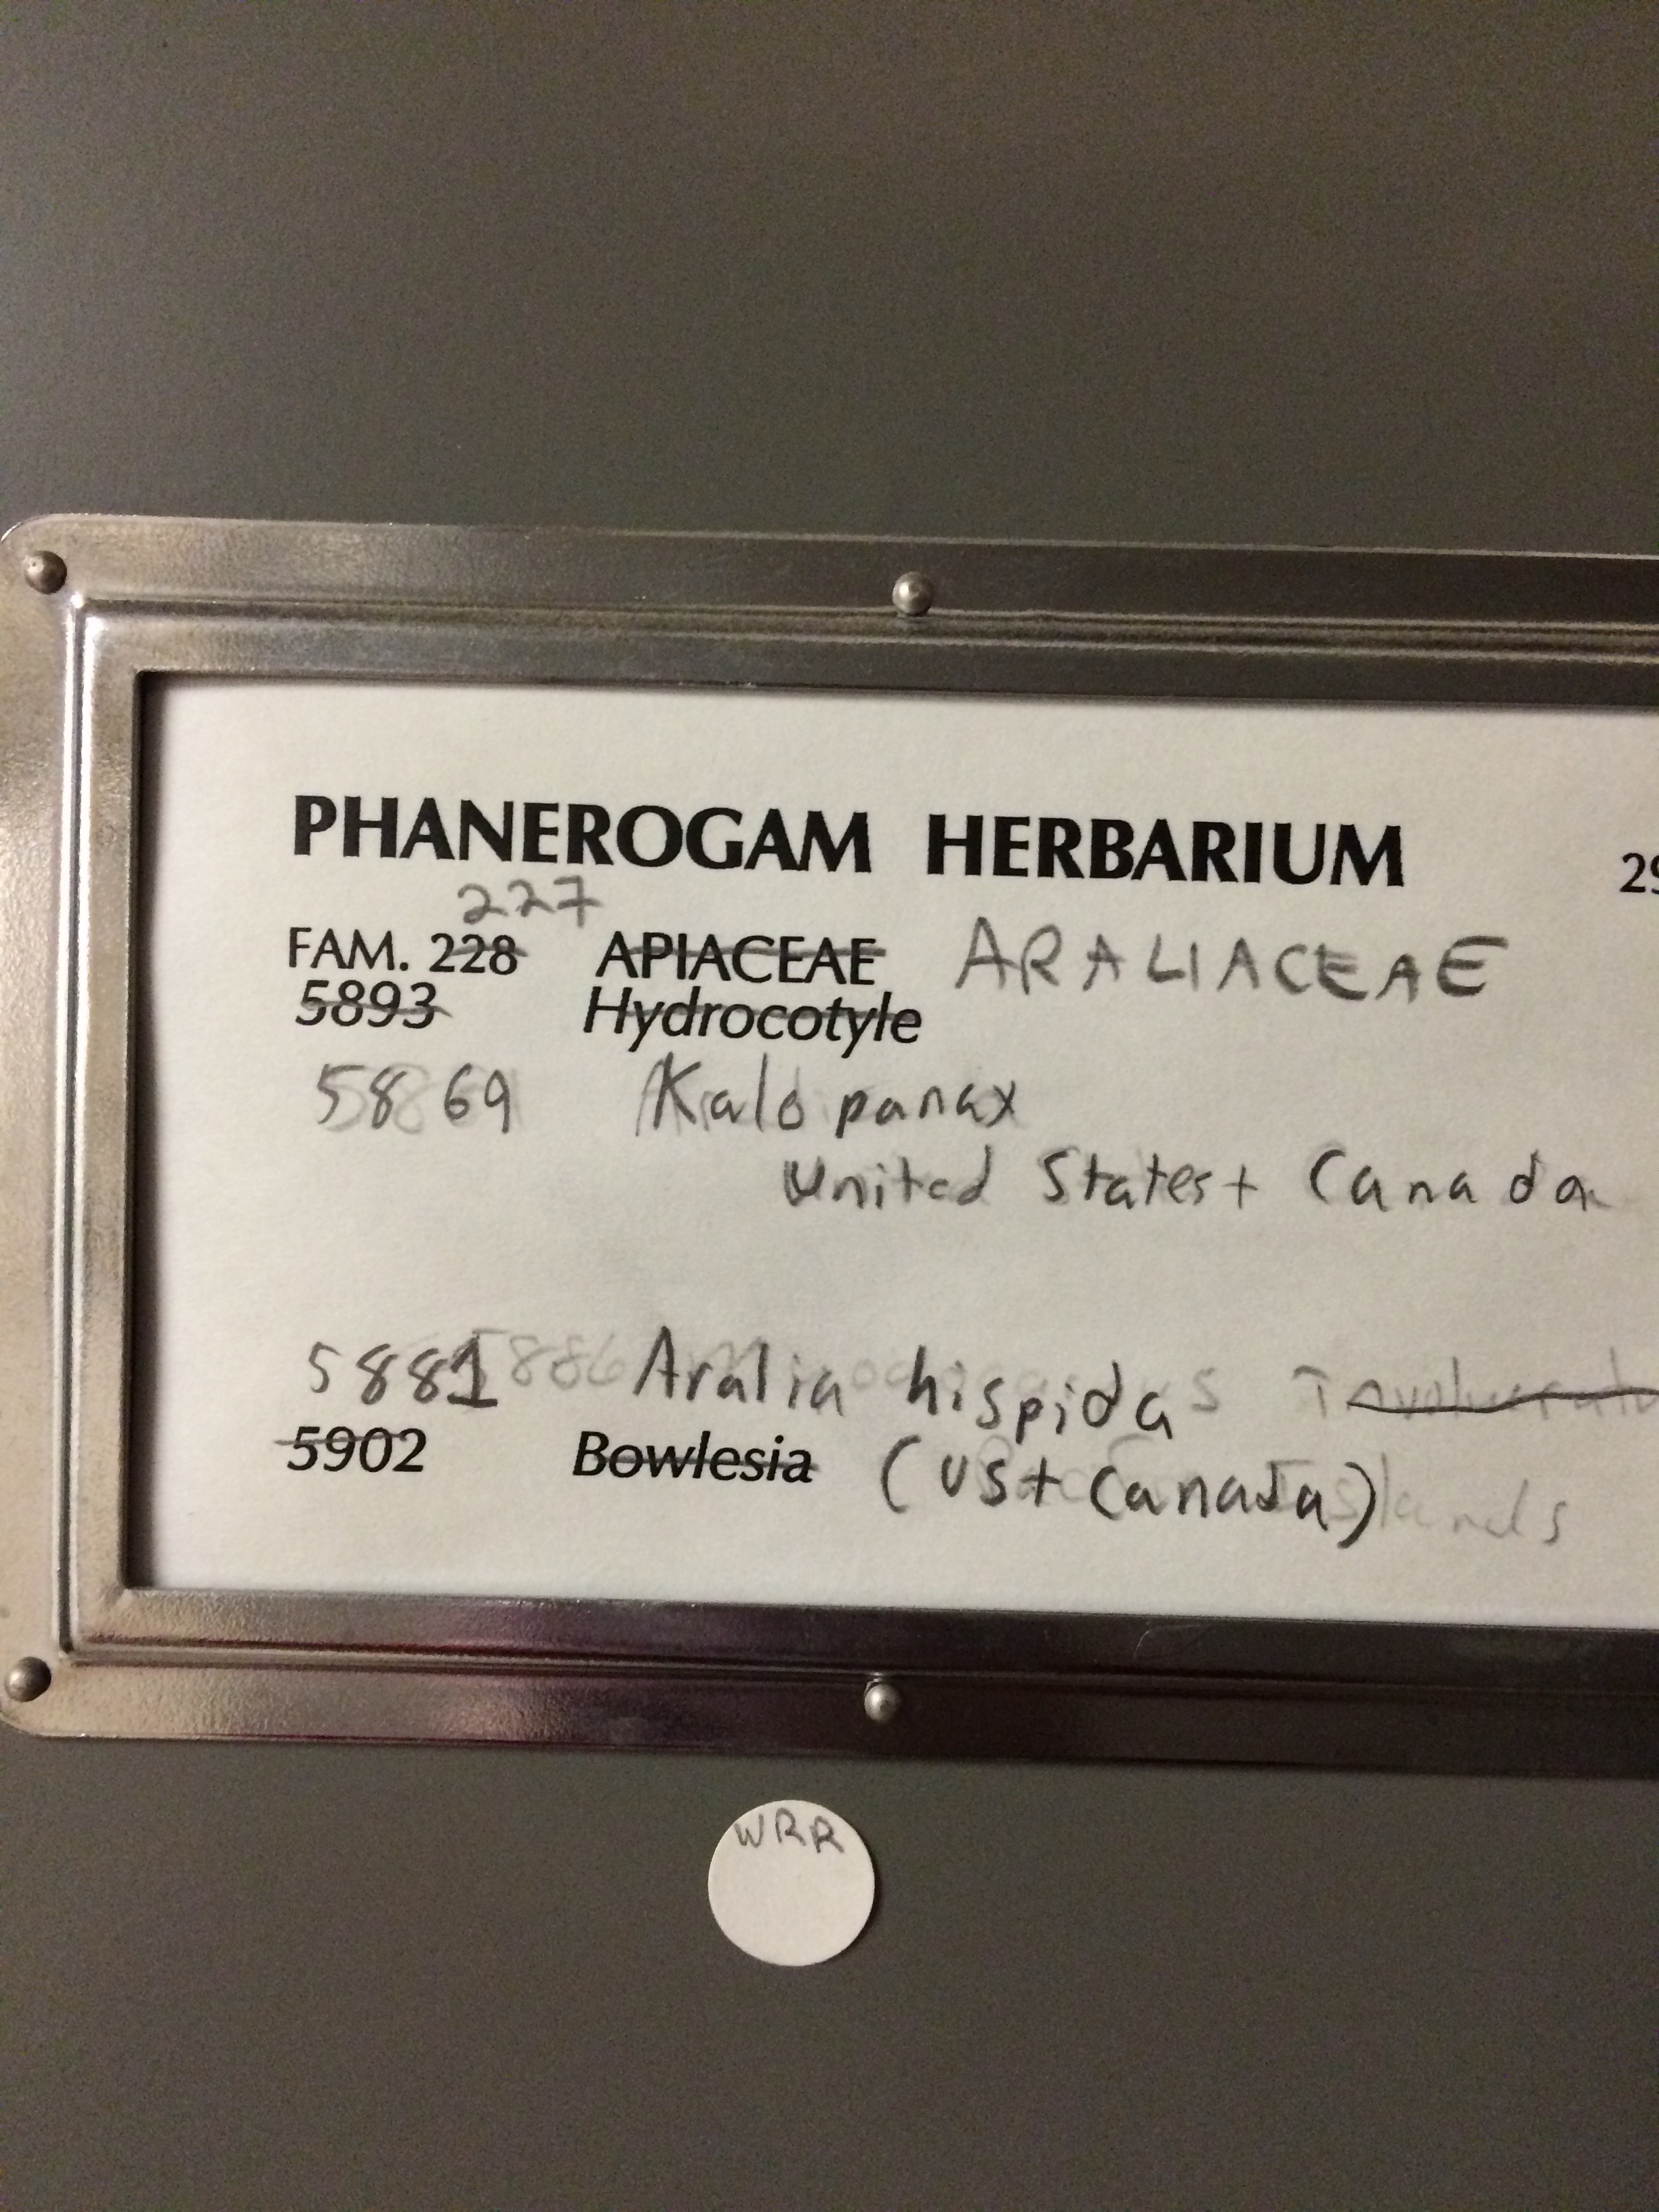 PHANEROGAM HERBARIUM 29
227
FAM. 228 APIACEAE ARALIACEAE
5893 Hydrocotyle
5869 Kalopanax
United States + Canada
5881 5886 Aralia hispida
5902 Bowlesia (US + Canada) Islands
WRR